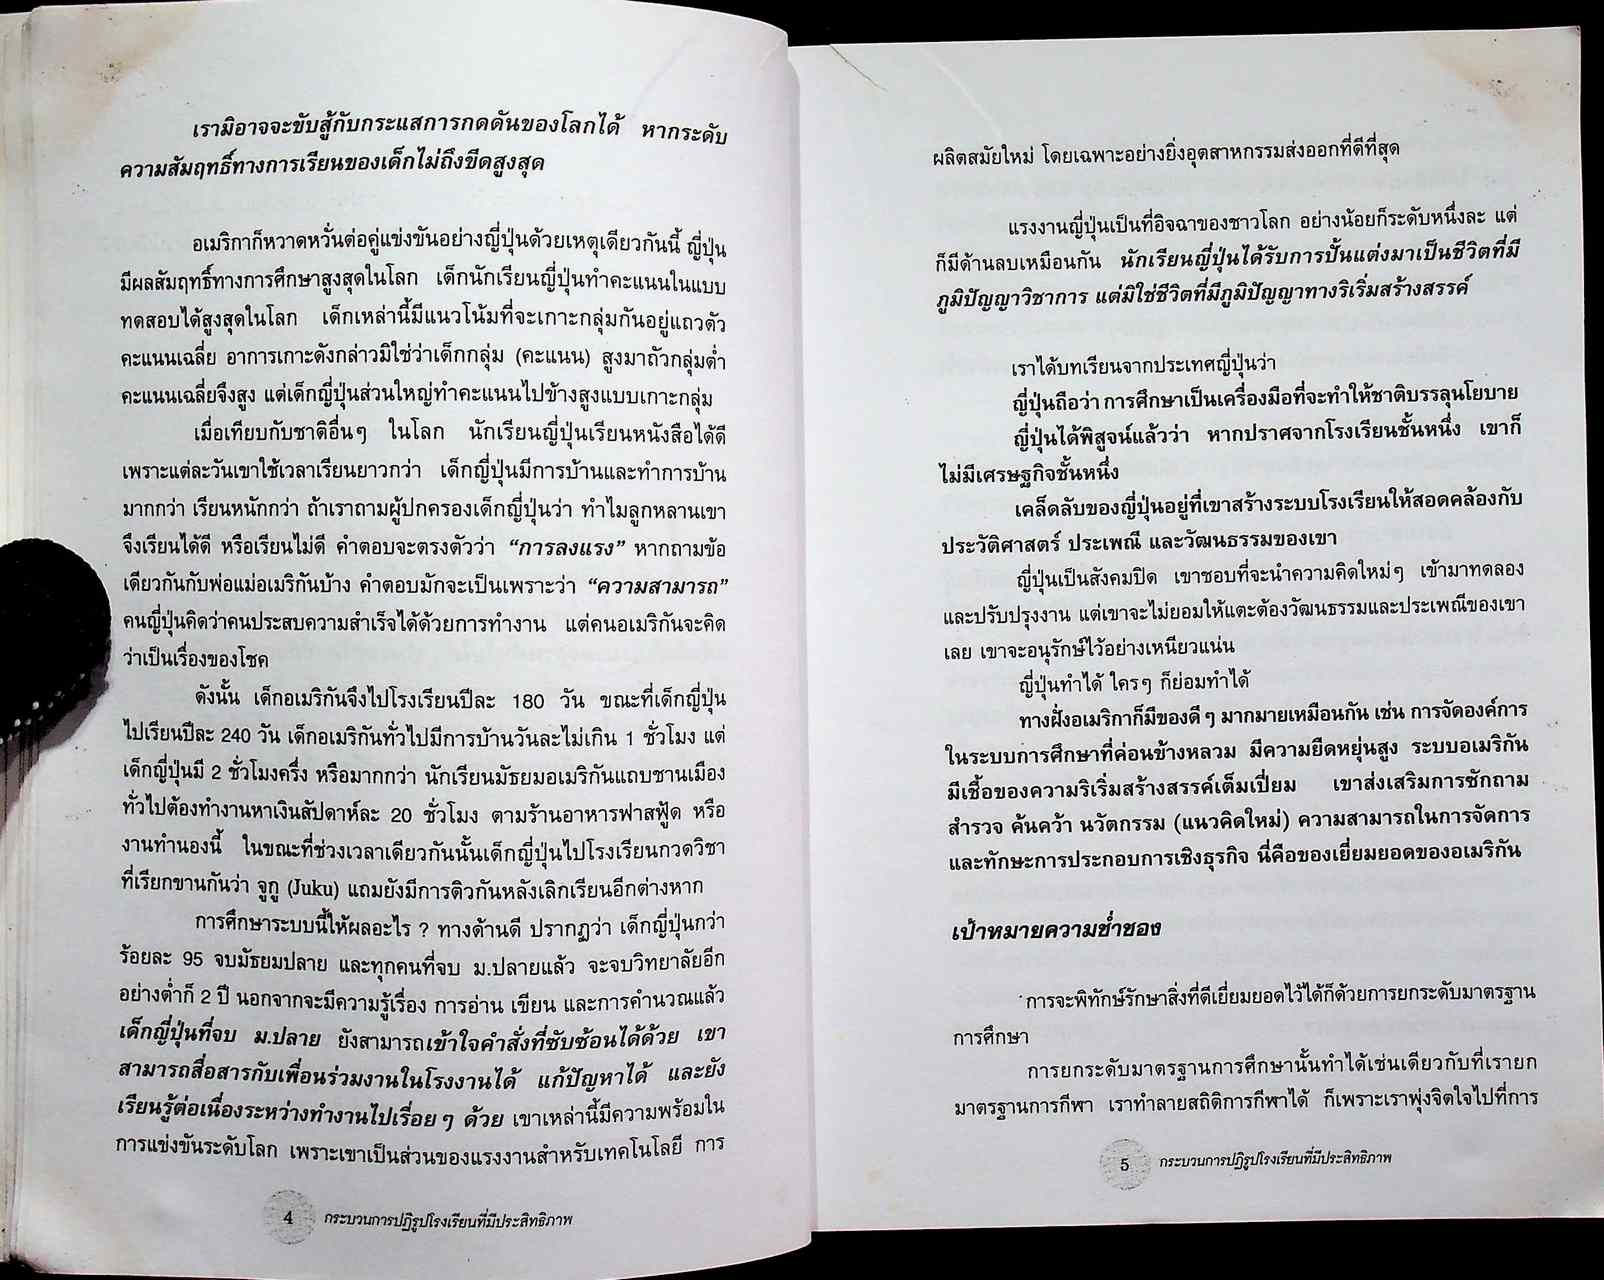 เรามิอาจจะขับสู้กับกระแสการกดดันของโลกได้ หากระดับ
ความสัมฤทธิ์ทางการเรียนของเด็กไม่ถึงขีดสูงสุด
อเมริกาก็หวาดหวั่นต่อคู่แข่งขันอย่างญี่ปุ่นด้วยเหตุเดียวกันนี้ ญี่ปุ่น
มีผลสัมฤทธิ์ทางการศึกษาสูงสุดในโลก เด็กนักเรียนญี่ปุ่นทำคะแนนในแบบ
ทดสอบได้สูงสุดในโลก เด็กเหล่านี้มีแนวโน้มที่จะเกาะกลุ่มกันอยู่แถวตัว
คะแนนเฉลี่ย อาการเกาะดังกล่าวมิใช่ว่าเด็กกลุ่ม (คะแนน) สูงมาถัวกลุ่มต่ำ
คะแนนเฉลี่ยจึงสูง แต่เด็กญี่ปุ่นส่วนใหญ่ทำคะแนนไปข้างสูงแบบเกาะกลุ่ม
เมื่อเทียบกับชาติอื่นๆ ในโลก นักเรียนญี่ปุ่นเรียนหนังสือได้ดี
เพราะแต่ละวันเขาใช้เวลาเรียนยาวกว่า เด็กญี่ปุ่นมีการบ้านและทำการบ้าน
มากกว่า เรียนหนักกว่า ถ้าเราถามผู้ปกครองเด็กญี่ปุ่นว่า ทำไมลูกหลานเขา
จึงเรียนได้ดี หรือเรียนไม่ดี คำตอบจะตรงตัวว่า “การลงแรง” หากถามข้อ
เดียวกันกับพ่อแม่อเมริกันบ้าง คำตอบมักจะเป็นเพราะว่า “ความสามารถ”
คนญี่ปุ่นคิดว่าคนประสบความสำเร็จได้ด้วยการทำงาน แต่คนอเมริกันจะคิด
ว่าเป็นเรื่องของโชค
ดังนั้น เด็กอเมริกันจึงไปโรงเรียนปีละ 180 วัน ขณะที่เด็กญี่ปุ่น
ไปเรียนปีละ 240 วัน เด็กอเมริกันทั่วไปมีการบ้านวันละไม่เกิน 1 ชั่วโมง แต่
เด็กญี่ปุ่นมี 2 ชั่วโมงครึ่ง หรือมากกว่า นักเรียนมัธยมอเมริกันแถบชานเมือง
ทั่วไปต้องทำงานหาเงินสัปดาห์ละ 20 ชั่วโมง ตามร้านอาหารฟาสฟู้ด หรือ
งานทำนองนี้ ในขณะที่ช่วงเวลาเดียวกันนั้นเด็กญี่ปุ่นไปโรงเรียนกวดวิชา
ที่เรียกขานกันว่า จูกู (Juku) แถมยังมีการติวกันหลังเลิกเรียนอีกต่างหาก
การศึกษาระบบนี้ให้ผลอะไร ? ทางด้านดี ปรากฏว่า เด็กญี่ปุ่นกว่า
ร้อยละ 95 จบมัธยมปลาย และทุกคนที่จบ ม.ปลายแล้ว จะจบวิทยาลัยอีก
อย่างต่ำก็ 2 ปี นอกจากจะมีความรู้เรื่อง การอ่าน เขียน และการคำนวณแล้ว
เด็กญี่ปุ่นที่จบ ม.ปลาย ยังสามารถเข้าใจคำสั่งที่ซับซ้อนได้ด้วย เขา
สามารถสื่อสารกับเพื่อนร่วมงานในโรงงานได้ แก้ปัญหาได้ และยัง
เรียนรู้ต่อเนื่องระหว่างทำงานไปเรื่อยๆ ด้วย เขาเหล่านี้มีความพร้อมใน
การแข่งขันระดับโลก เพราะเขาเป็นส่วนของแรงงานสำหรับเทคโนโลยี การ
4 กระบวนการปฏิรูปโรงเรียนที่มีประสิทธิภาพ
ผลิตสมัยใหม่ โดยเฉพาะอย่างยิ่งอุตสาหกรรมส่งออกที่ดีที่สุด
แรงงานญี่ปุ่นเป็นที่อิจฉาของชาวโลก อย่างน้อยก็ระดับหนึ่งละ แต่
ก็มีด้านลบเหมือนกัน นักเรียนญี่ปุ่นได้รับการปั้นแต่งมาเป็นชีวิตที่มี
ภูมิปัญญาวิชาการ แต่มิใช่ชีวิตที่มีภูมิปัญญาทางริเริ่มสร้างสรรค์
เราได้บทเรียนจากประเทศญี่ปุ่นว่า
ญี่ปุ่นถือว่า การศึกษาเป็นเครื่องมือที่จะทำให้ชาติบรรลุนโยบาย
ญี่ปุ่นได้พิสูจน์แล้วว่า หากปราศจากโรงเรียนชั้นหนึ่ง เขาก็
ไม่มีเศรษฐกิจชั้นหนึ่ง
เคล็ดลับของญี่ปุ่นอยู่ที่เขาสร้างระบบโรงเรียนให้สอดคล้องกับ
ประวัติศาสตร์ ประเพณี และวัฒนธรรมของเขา
ญี่ปุ่นเป็นสังคมปิด เขาชอบที่จะนำความคิดใหม่ๆ เข้ามาทดลอง
และปรับปรุงงาน แต่เขาจะไม่ยอมให้แตะต้องวัฒนธรรมและประเพณีของเขา
เลย เขาจะอนุรักษ์ไว้อย่างเหนียวแน่น
ญี่ปุ่นทำได้ ใครๆ ก็ย่อมทำได้
ทางฝั่งอเมริกาก็มีของดีๆ มากมายเหมือนกัน เช่น การจัดองค์การ
ในระบบการศึกษาที่ค่อนข้างหลวม มีความยืดหยุ่นสูง ระบบอเมริกัน
มีเชื้อของความริเริ่มสร้างสรรค์เต็มเปี่ยม เขาส่งเสริมการซักถาม
สำรวจ ค้นคว้า นวัตกรรม (แนวคิดใหม่) ความสามารถในการจัดการ
และทักษะการประกอบการเชิงธุรกิจ นี่คือของเยี่ยมยอดของอเมริกัน
เป้าหมายความช่ำชอง
การจะพิทักษ์รักษาสิ่งที่ดีเยี่ยมยอดไว้ได้ก็ด้วยการยกระดับมาตรฐาน
การศึกษา
การยกระดับมาตรฐานการศึกษานั้นทำได้เช่นเดียวกับที่เรายก
มาตรฐานการกีฬา เราทำลายสถิติการกีฬาได้ ก็เพราะเราพุ่งจิตใจไปที่การ
5 กระบวนการปฏิรูปโรงเรียนที่มีประสิทธิภาพ